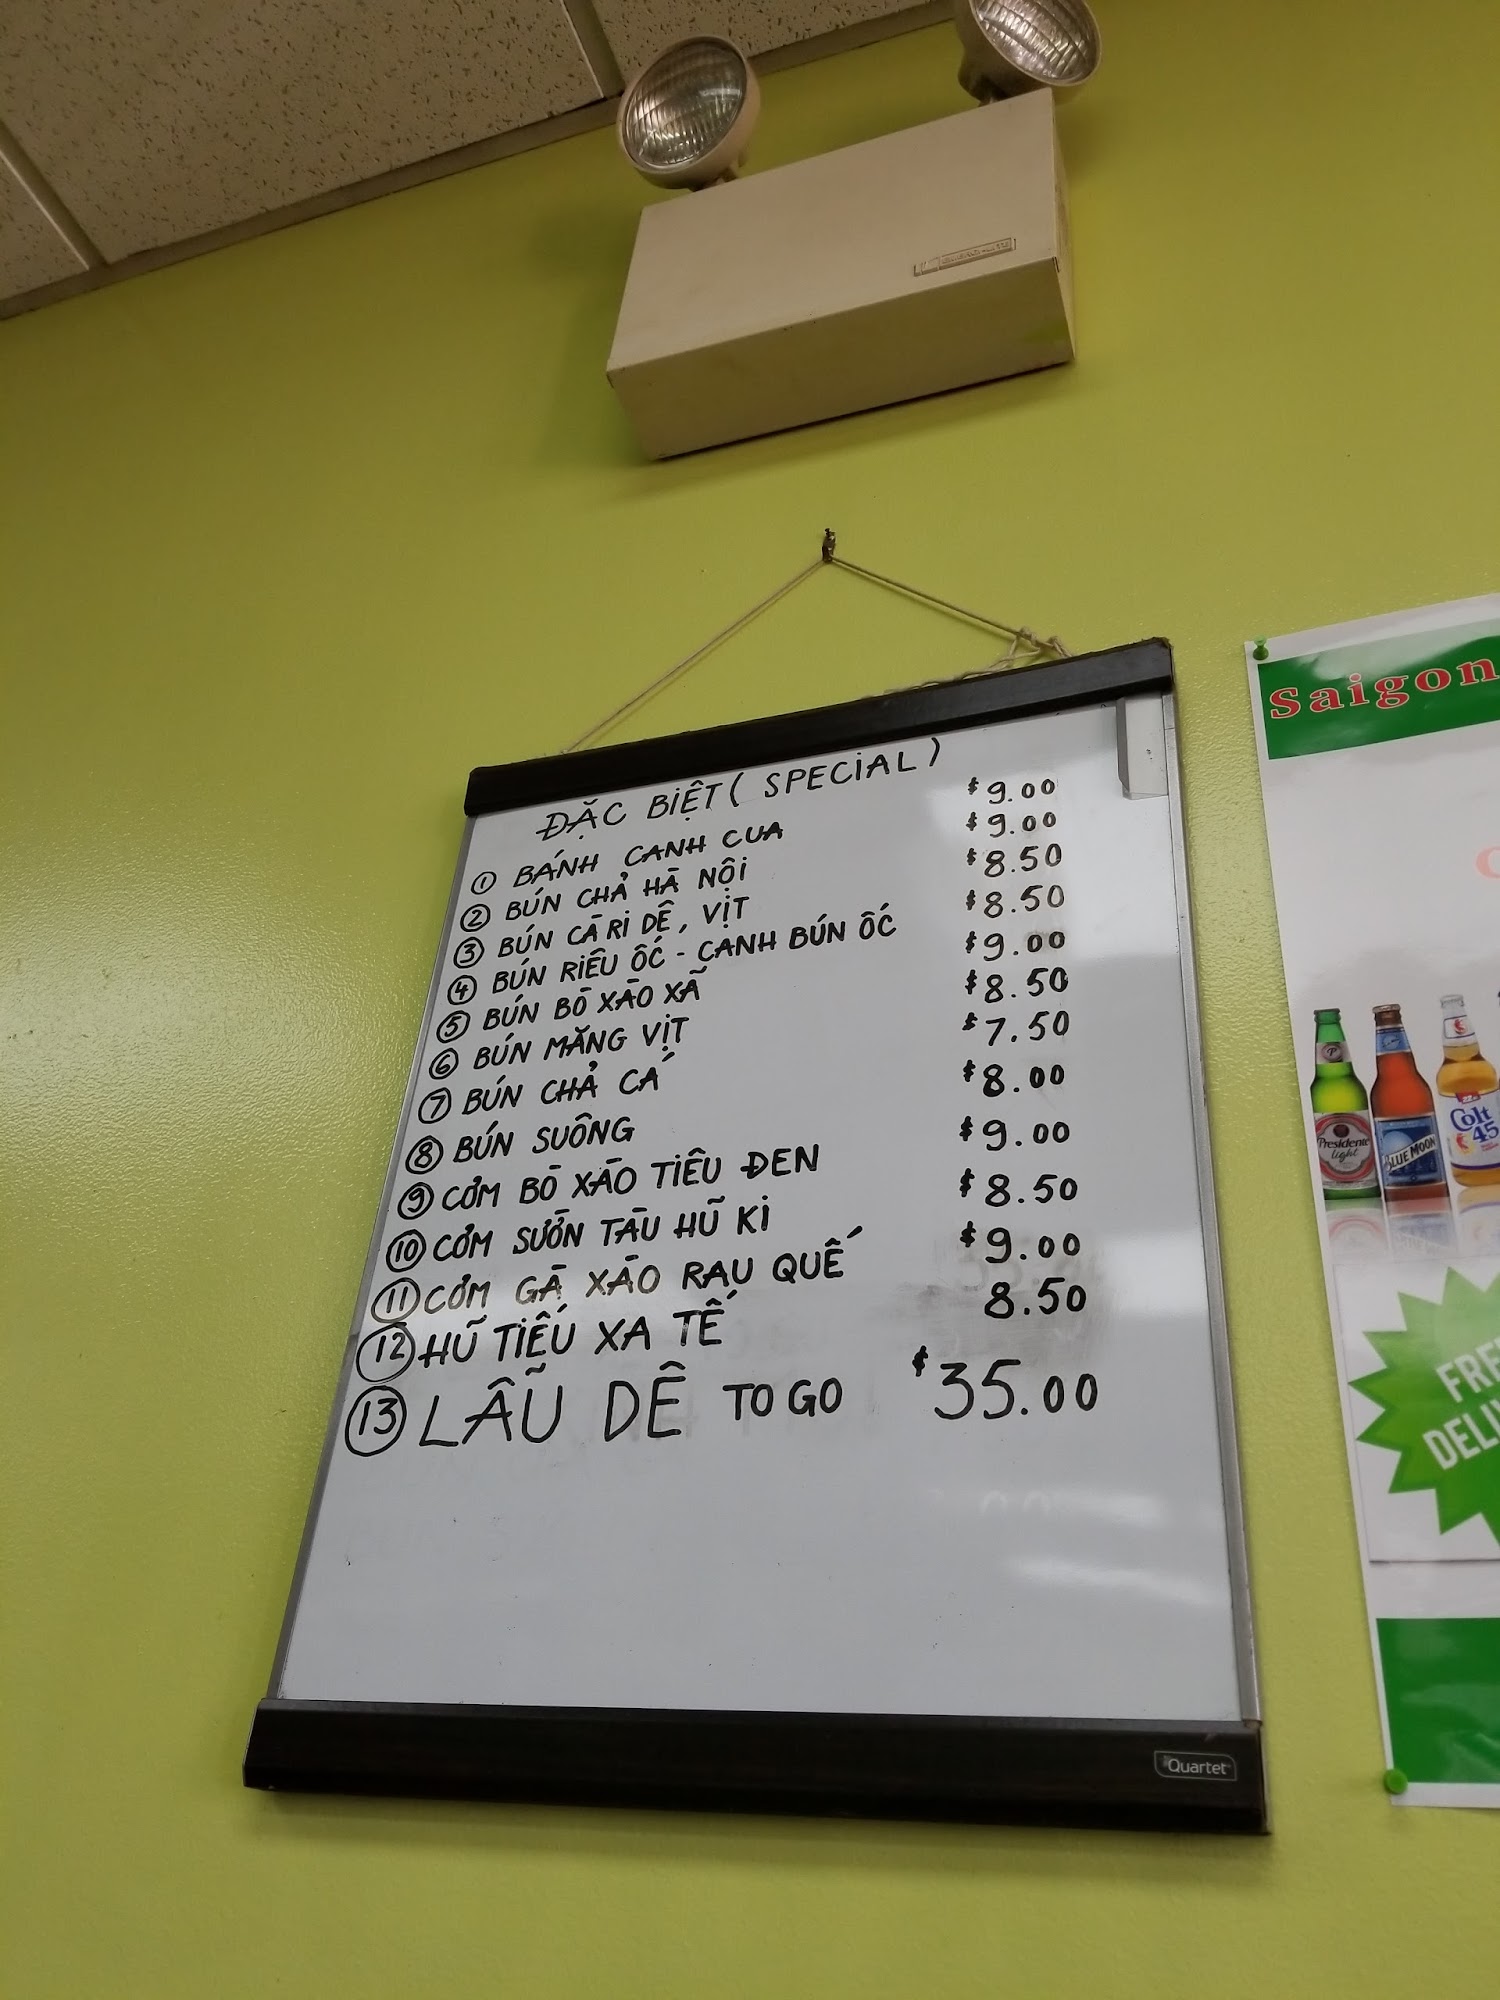 ĐẶC BIỆT ( SPECIAL )
① BÁNH CANH CUA $9.00
② BÚN CHẢ HÀ NỘI $9.00
③ BÚN CÀ RI DÊ, VỊT $8.50
④ BÚN RIÊU ỐC - CANH BÚN ỐC $8.50
⑤ BÚN BÒ XÀO XÃ $9.00
⑥ BÚN MĂNG VỊT $8.50
⑦ BÚN CHẢ CÁ $7.50
⑧ BÚN SUÔNG $8.00
⑨ CƠM BÒ XÀO TIÊU ĐEN $9.00
⑩ CƠM SƯỜN TÀU HŨ KI $8.50
⑪ CƠM GÀ XÀO RAU QUẾ $9.00
⑫ HŨ TIẾU XA TẾ 8.50
⑬ LẪU DÊ TO GO $35.00
Quartet
Saigon
Presidente
light
BLUE MOON
Colt
45